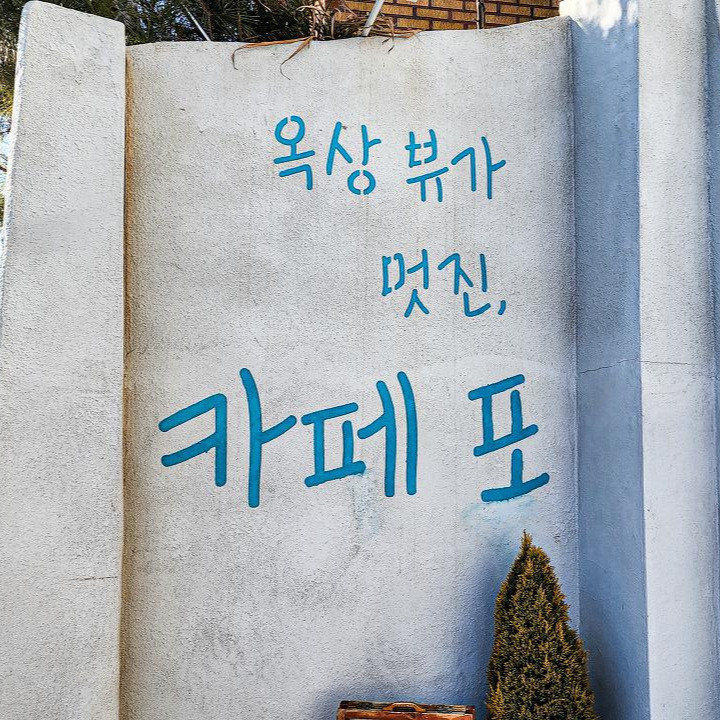 옥상 뷰가
멋진,
카페 포